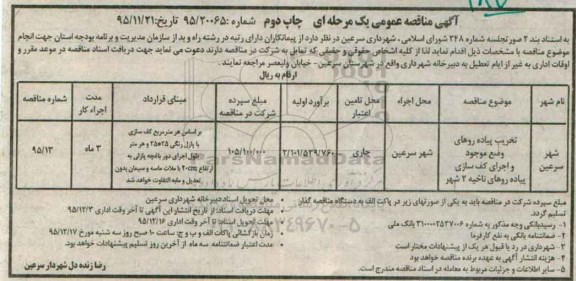 آگهی مناقصه عمومی یک مرحله ای چاپ دوم شماره: ۹۵/۲۰۰۶۵ تاریخ: ۹۵/۱۱/۲۱
به استناد بند ۲ صورتجلسه شماره ۲۴۸ شورای اسلامی، شهرداری سرعین در نظر دارد از پیمانکاران دارای رتبه در رشته راه و ید از سازمان مدیریت و برنامه بودجه استان جهت انجام
موضوع مناقصه با مشخصات ذیل اقدام نماید لذا از کلیه اشخاص حقوقی و حقیقی که تمایل به شرکت در مناقصه دارند دعوت می نماید جهت دریافت اسناد مناقصه در موعد مقرر و
اوقات اداری به غیر از ایام تعطیل به دبیرخانه شهرداری واقع در شهرستان سرعین - خیابان ولیعصر مراجعه نمایند.
ارقام به ریال
نام شهر | موضوع مناقصه | محل اجراء | محل تامین اعتبار | برآورد اولیه | مبلغ سپرده شرکت در مناقصه | مبنای قرارداد | مدت اجراء کار | شماره مناقصه
شهر سرعین | تخریب پیاده روهای وضع موجود و اجرای کف سازی پیاده روهای ناحیه ۲ شهر | شهر سرعین | جاری | ۲/۱۰۱/۵۳۹/۷۶۰ | ۱۰۵/۱۰۰/۰۰۰ | بر اساس هر متر مربع کف سازی با پازل رنگی ۲۵*۲۵ و هر متر طول اجرای دور باغچه پازلی به ارتفاع ۲۰cm با ملات ماسه و سیمان بدون تعدیل و مابه التفاوت خواهد شد | ۳ ماه | ۹۵/۱۳
مبلغ سپرده شرکت در مناقصه باید به یکی از صورتهای زیر در پاکت الف به دستگاه مناقصه گذار
تسلیم گردد.
۱- رسید بانکی وجه مذکور به شماره ۳۱۰۰۰۰۲۵۳۷۰۰۶ بانک ملی
۲- ضمانتنامه بانکی به نفع کارفرما
۳- شهرداری در رد یا قبول هر یک از پیشنهادات مختار است
۴- هزینه انتشار آگهی به عهده برنده مناقصه خواهد بود
۵- سایر اطلاعات و جزئیات مربوط به معامله در اسناد مناقصه مندرج است.
محل تحویل اسناد دبیرخانه شهرداری سرعین
مهلت دریافت اسناد: از تاریخ انتشار این آگهی تا آخر وقت اداری ۹۵/۱۲/۳
مهلت تحویل اسناد: تا آخر وقت اداری ۹۵/۱۲/۱۶
زمان بازگشائی پاکات الف و ب و ج: ساعت ۱۰ صبح روز سه شنبه مورخ ۹۵/۱۲/۱۷
مدت اعتبار ضمانتنامه سه ماه از آخرین روز تسلیم پیشنهادات خواهد بود.
رضا زنده دل شهردار سرعین
ParsNamadData